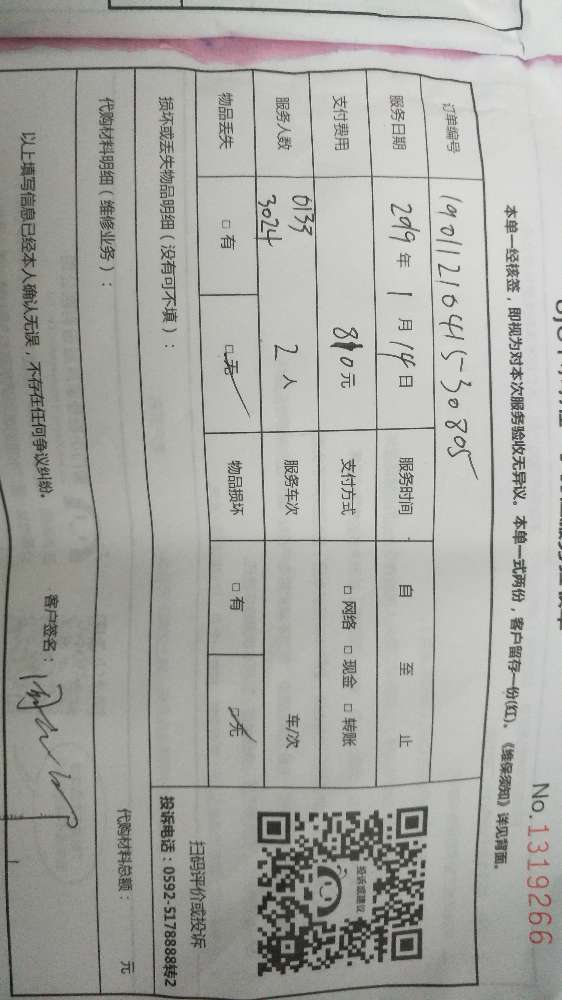 No.1319266
本单一经核签，即视为对本次服务验收无异议。本单一式两份，客户留存一份(红)。《维保须知》详见背面。
订单编号 19011210415-30805
服务日期 2019年 1月 14日 服务时间 自 至 止
支付费用 810元 支付方式 □ 网络 □ 现金 □ 转账
服务人数 0133 3024 2人 服务车次 车/次
物品丢失 □ 有 □ 无 物品损坏 □ 有 □ 无
损坏或丢失物品明细（没有可不填）：
代购材料明细（维修业务）：
代购材料总额： 元
以上填写信息已经本人确认无误，不存在任何争议纠纷。
客户签名：
投诉或建议
扫码评价或投诉
投诉电话：0592-5178888转2